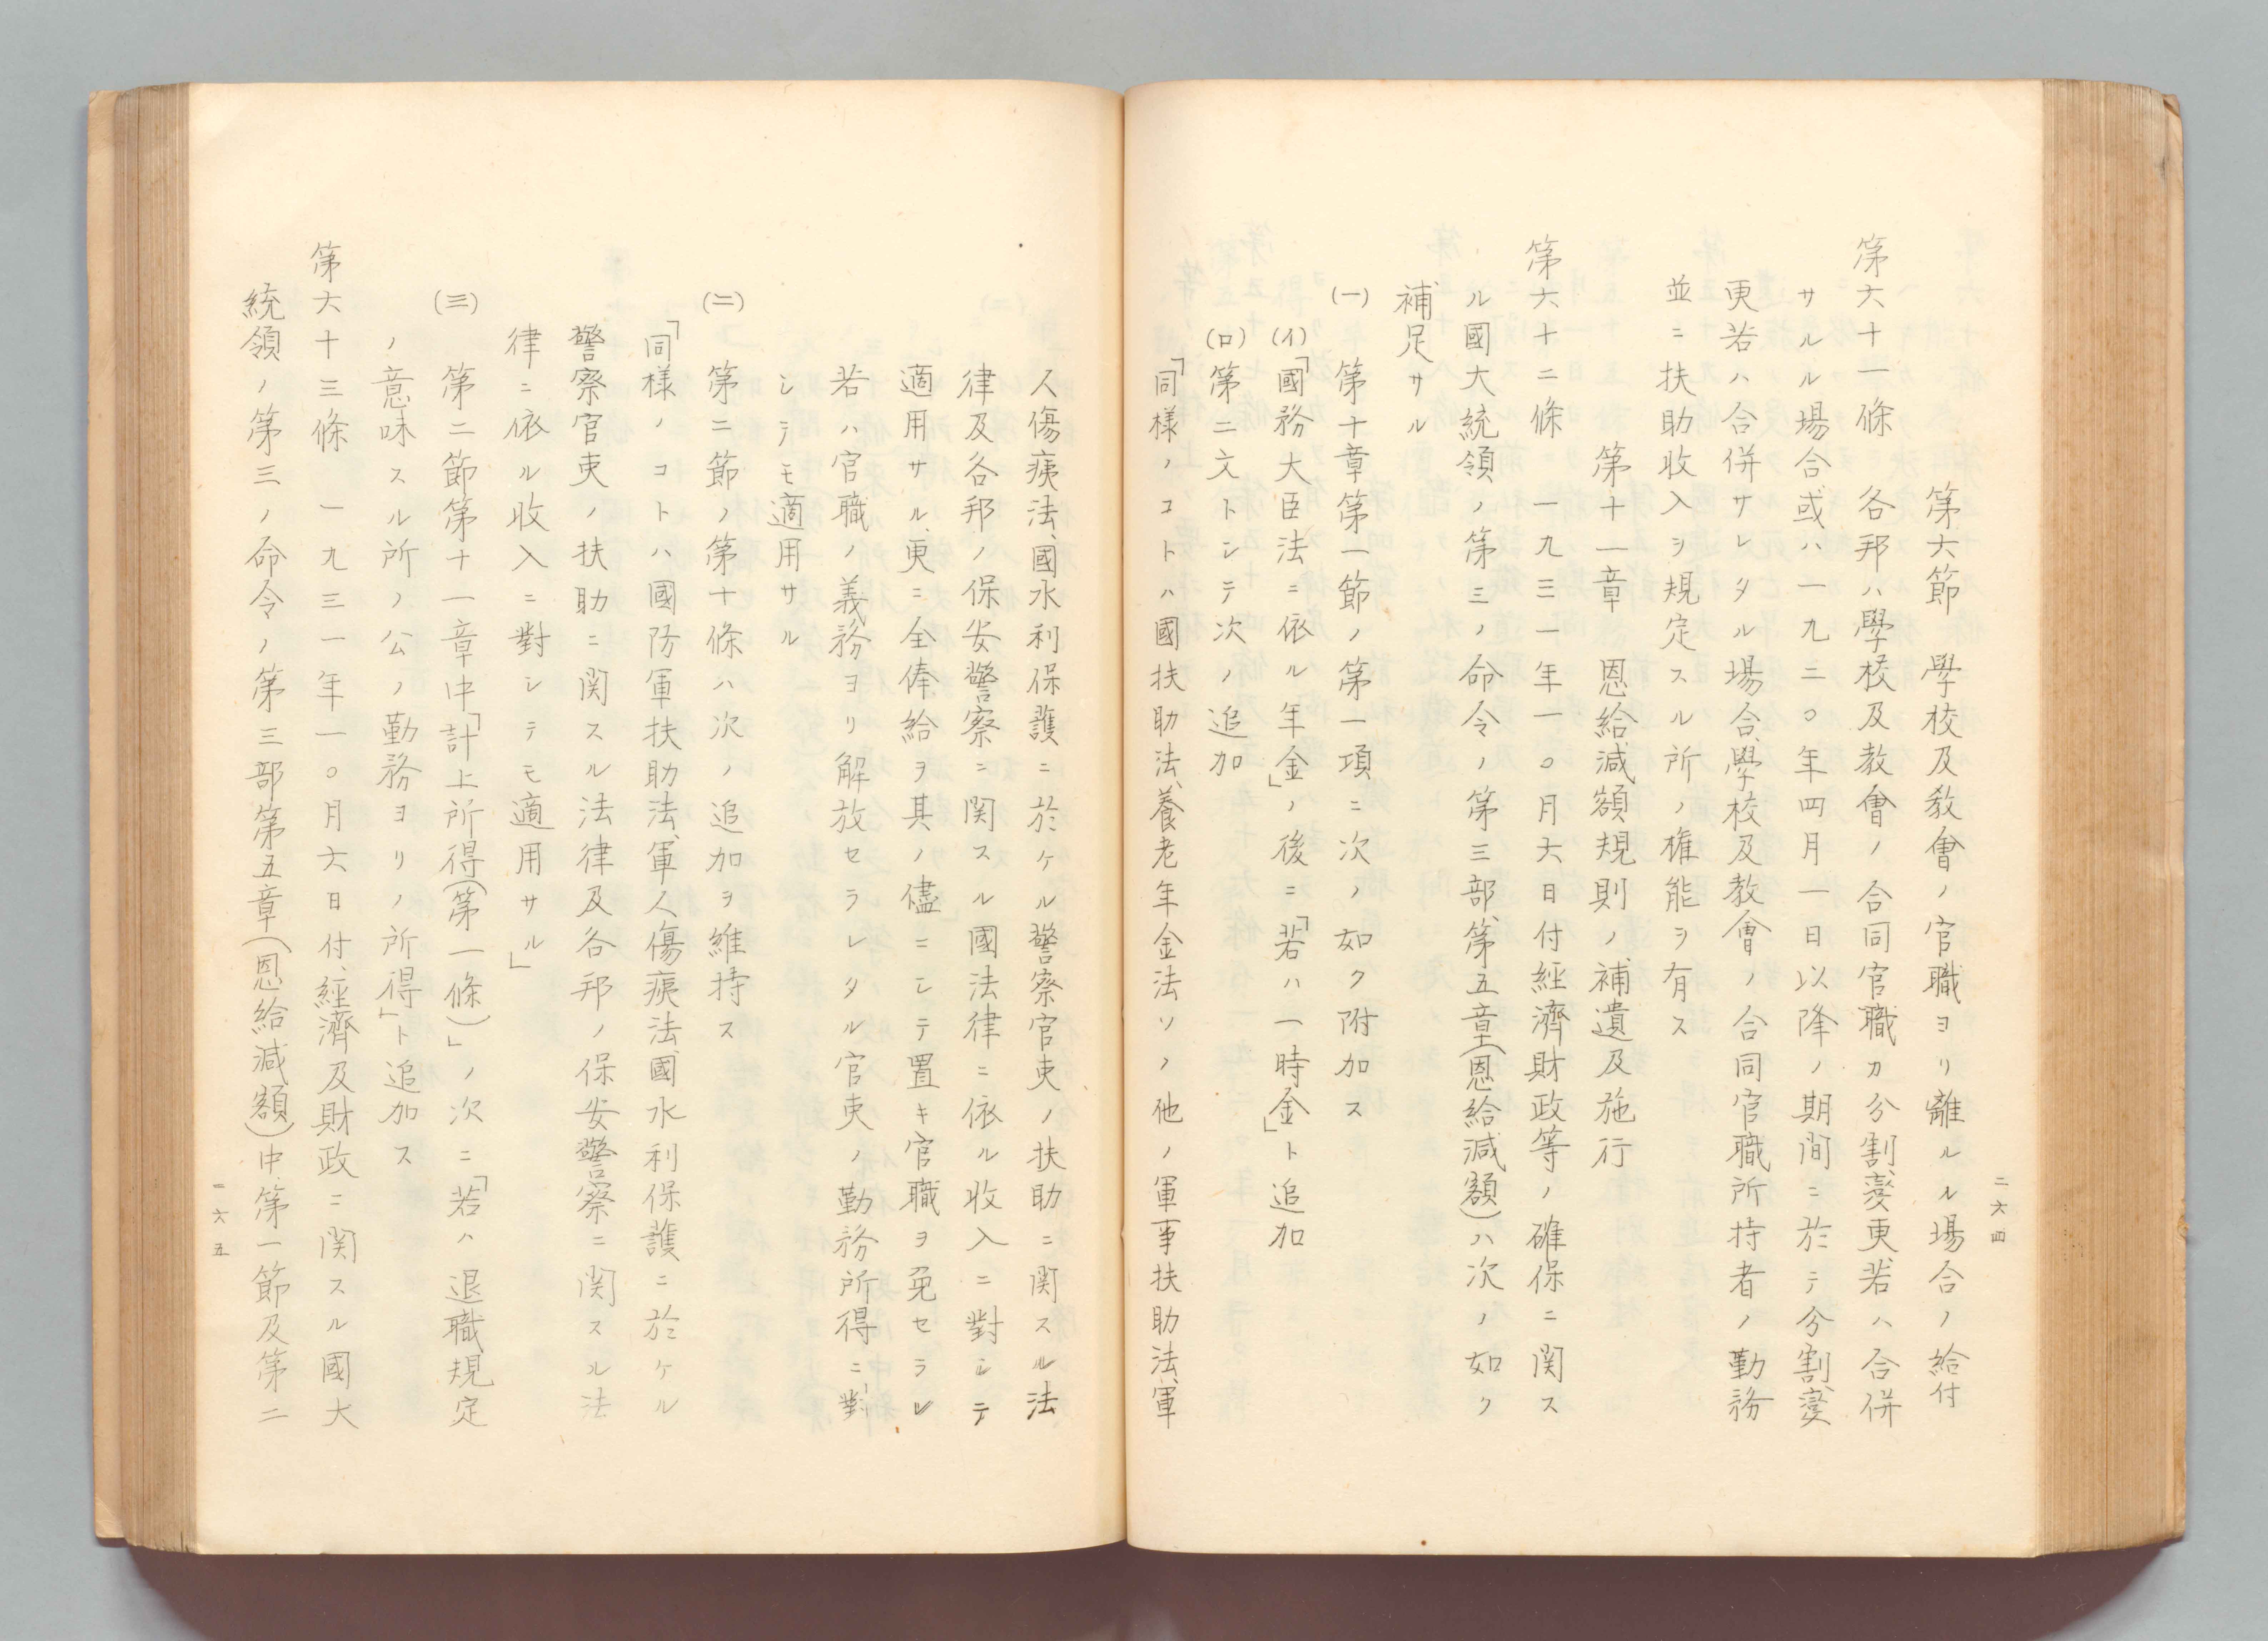 第六節　學校及教會ノ官職ヨリ離ルル場合ノ給付
第六十一條　各邦ハ學校及教會ノ合同官職カ分割、変更若ハ合併
サルル場合或ハ一九二〇年四月一日以降ノ期間ニ於テ分割、変
更若ハ合併サレタル場合、學校及教會ノ合同官職所持者ノ勤務
並ニ扶助收入ヲ規定スル所ノ権能ヲ有ス
第十一章　恩給減額規則ノ補遺及施行
第六十二條　一九三一年一〇月六日付経濟財政等ノ確保ニ関ス
ル國大統領ノ第三ノ命令ノ第三部、第五章(恩給減額)ハ次ノ如ク
補足サル
(一)　第十章第一節ノ第一項ニ次ノ如ク附加ス
(イ)「國務大臣法ニ依ル年金」ノ後ニ「若ハ一時金」ト追加
(ロ)第二文トシテ次ノ追加
「同様ノコトハ國扶助法、養老年金法ソノ他ノ軍事扶助法、軍
二六四
人傷痍法、國水利保護ニ於ケル警察官吏ノ扶助ニ関スル法
律及各邦ノ保安警察ニ関スル國法律ニ依ル收入ニ對シテ
適用サル、更ニ全俸給ヲ其ノ儘ニシテ置キ官職ヲ免セラレ
若ハ官職ノ義務ヨリ解放セラレタル官吏ノ勤務所得ニ對
シテモ適用サル
(二)　第二節ノ第十條ハ次ノ追加ヲ維持ス
「同様ノコトハ國防軍扶助法、軍人傷痍法、國水利保護ニ於ケル
警察官吏ノ扶助ニ関スル法律及各邦ノ保安警察ニ関スル法
律ニ依ル收入ニ對シテモ適用サル」
(三)　第二節第十一章中「計上所得(第一條)」ノ次ニ「若ハ退職規定
ノ意味スル所ノ公ノ勤務ヨリノ所得」ト追加ス
第六十三條　一九三一年一〇月六日付、経濟及財政ニ関スル國大
統領ノ第三ノ命令ノ第三部第五章(恩給減額)中、第一節及第二
二六五